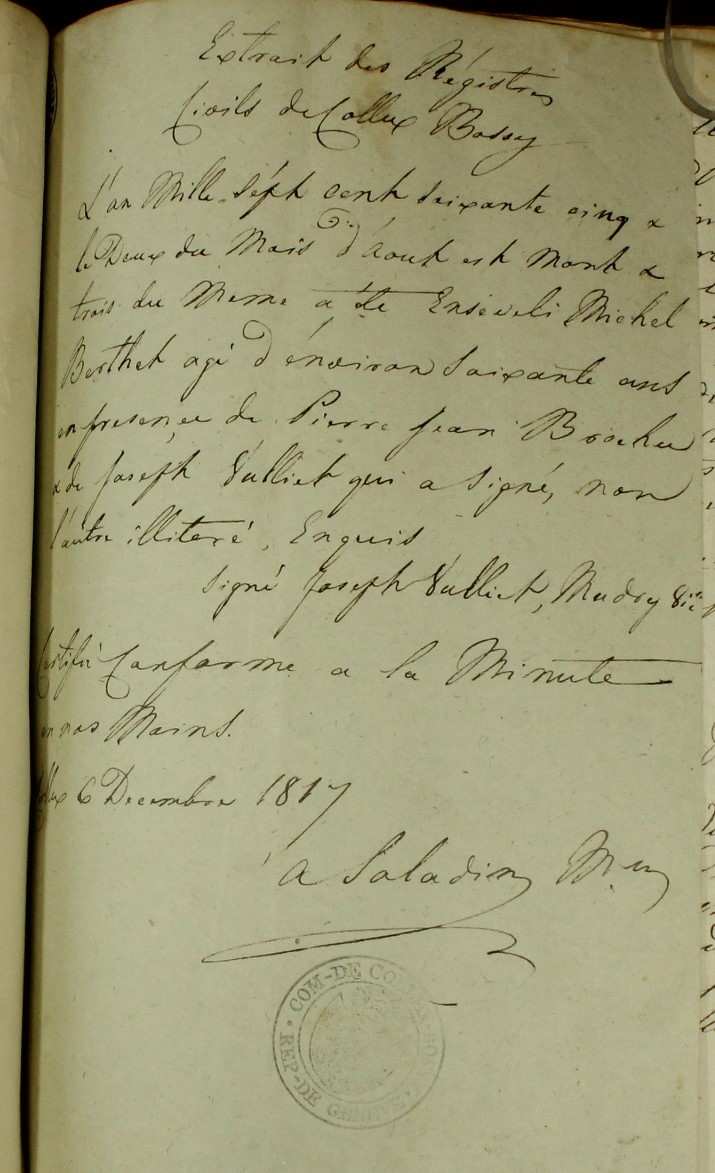 Extrait des Régistres
Civils de Collex Bossy
L'an Mille Sépt cent soixante cinq &
le Deux du Mois d'aout est Mort &
trois du Meme a été Enséveli Michel
Berthet agé d'énviron Soixante ans
en presençe de Pierre Jean Brochu
& de Joseph Vulliet qui a Signé, non
l'autre illiteré, Enquis
signé Joseph Vulliet, Mudry
Certifié Conforme a la Minute
en nos Mains.
Collex 6 Decembre 1817
a Saladin
COM-DE COLLEX-BOSSY
REP-DE GENEVE